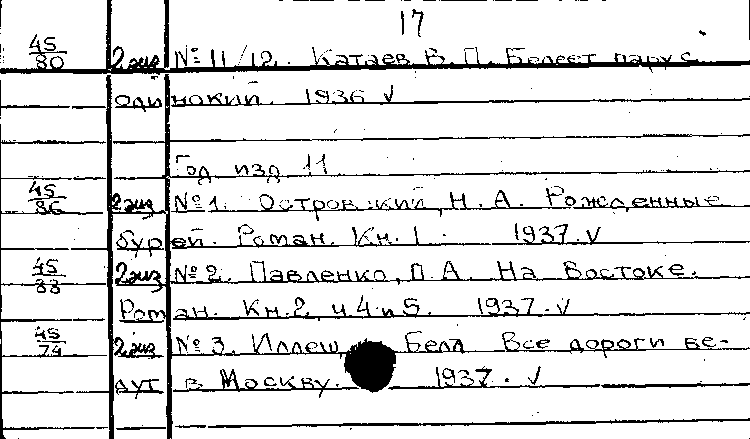 17
45/80 2 экз № 11/12. Катаев В. П. Белеет парус
одинокий. 1936 √
Год изд 11
45/86 2 экз № 1. Островский, Н. А. Рожденные
бурей. Роман. Кн. 1. 1937. √
45/83 2 экз № 2. Павленко, П. А. На Востоке.
Роман. Кн. 2, ч. 4 и 5. 1937. √
45/74 2 экз № 3. Иллеш, Бела Все дороги ве-
дут в Москву. 1937. √